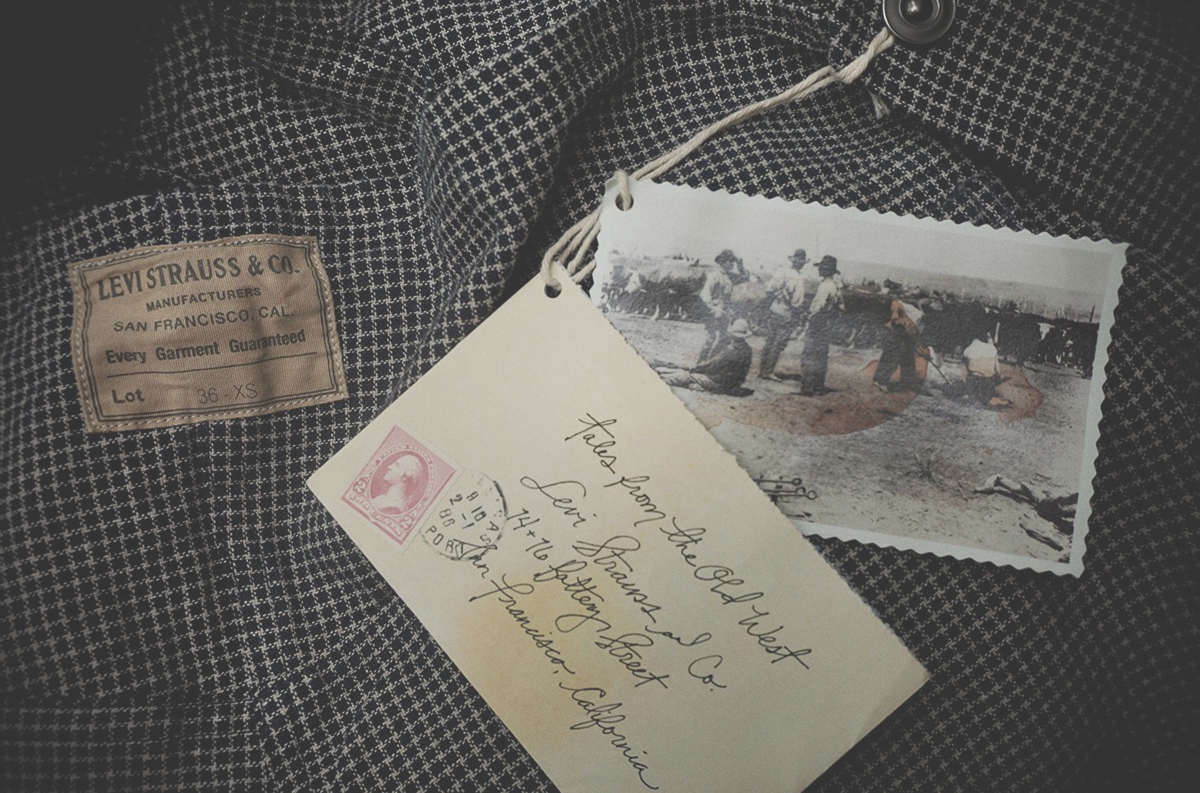 LEVI STRAUSS & CO.
MANUFACTURERS
SAN FRANCISCO, CAL.
Every Garment Guaranteed
Lot 36 - XS
Tales from the Old West
Levi Strauss and Co.
14+16 Battery Street
San Francisco, California